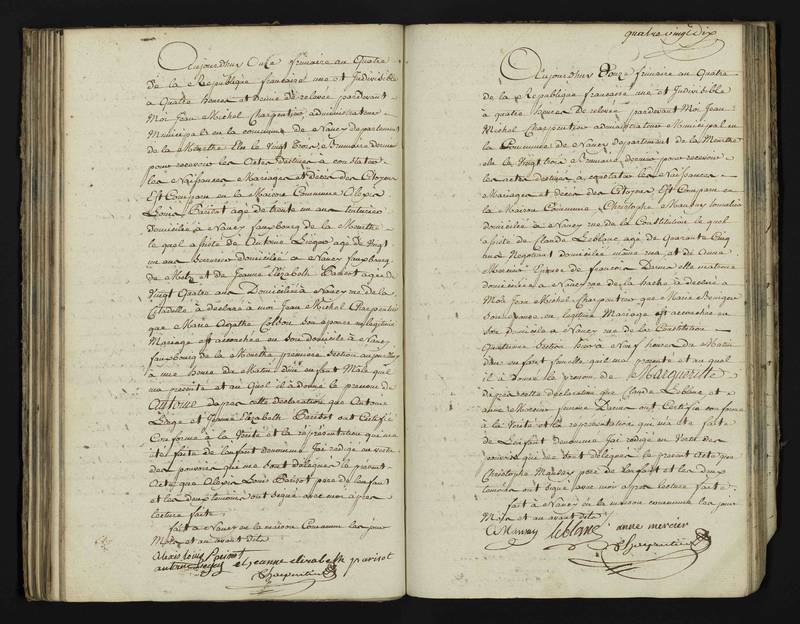 Aujourdhuy Onze frimaire an Quatre
de la République francaise une et Indivisible
a Quatre heures et demie de relevée pardevant
Moi Jean Michel Charpentier, administrateur
Municipal en la commune de Nancy departement
de la Meurthe Elu le Vingt trois Brumaire dernier
pour recevoir les Actes destinés a constater
les Naissances Mariages et décès des Citoyens
Est Comparu en la Maison Commune Alexis
Louis Parisot agé de trente un ans
domicilié a Nancy fauxbourg de la Meurthe
lequel assisté de Antoine agé de Vingt
un ans domicilié a Nancy fauxbourg
de Metz et de Jeanne Elizabeth Parisot agée de
Vingt Quatre ans Domiciliée a Nancy rue de la
Citadelle a déclaré a moi Jean Michel Charpentier
que Marie Agathe son epouse en legitime
Mariage est accouchée en son domicile a Nancy
fauxbourg de la Meurthe premiere Section aujourdhuy
a une heure du Matin d'un enfant Male que
ma presenté et au Quel il a donné le prenom de
Antoine dapres cette declaration que Antoine
et Jeanne Elizabeth Parisot ont Certifié
Conforme a la Verité et la représentation que ma
été faite de lenfant denommé Jai redigé en vertu
des pouvoirs qui me sont délégués le present
Acte que Alexis Louis Parisot pere de lenfant
et les deux temoins ont signé avec moi apres
lecture faite
fait a Nancy en la maison Commune les jour
Mois et an avant dits
Alexis Louis Parisot
antoine et jeanne elizabeth parisot
Charpentier
quatre vingt dix
Aujourdhuy Onze frimaire an Quatre
de la République francaise une et Indivisible
a quatre heures De relevée pardevant Moi Jean
Michel Charpentier administrateur Municipal en
la Commune de Nancy departement de la Meurthe
elu le Vingt trois Brumaire dernier pour recevoir
les actes destinés a constater les Naissances
Mariages et décès des Citoyens Est Comparu en
la Maison Commune Christophe
domicilié a Nancy rue de la Constitution le quel
assisté de Claude Leblanc agé de Quarante Cinq
ans Negotiant domicilié même rue et de Anne
Mercier Epouse de francois
domiciliée a Nancy rue de la hache a déclaré a
Moi Jean Michel Charpentier que Marie
son epouse en legitime Mariage est accouchée en
son domicile a Nancy rue de la Constitution
Quatrieme Section hier a Neuf heures du Matin
d'un enfant femelle quil ma presenté et au quel
il a donné le prenom de Marguerite
dapres cette déclaration que Claude Leblanc et
anne Mercier femme ont Certifié conforme
a la Verité et la representation qui ma été faite
de Lenfant denommé jai redigé en Vertu des
pouvoirs qui me sont délégués le present Acte que
Christophe pere de lenfant et les deux
temoins ont signé avec moi apres lecture faite
fait a Nancy en la maison commune les jour
Mois et an avant dits
leblanc anne mercier
Charpentier